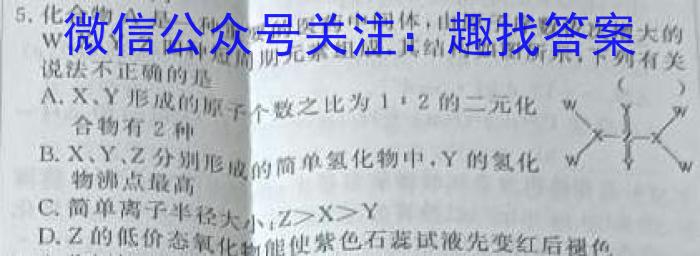 5. 化合物A是一种 的医 中间体,由 大的
微信公众号关注：趣找答案
W 种短周期元素组成,其结 如 所示,下列有关
说法不正确的是 ( )
A. X、Y形成的原子个数之比为1∶2的二元化
合物有2种
B. X、Y、Z分别形成的简单氢化物中,Y的氢化
物沸点最高
C. 简单离子半径大小:Z>X>Y
D. Z的低价态氧化物能使紫色石蕊试液先变红后褪色
W Y W
X Z X
W Y W